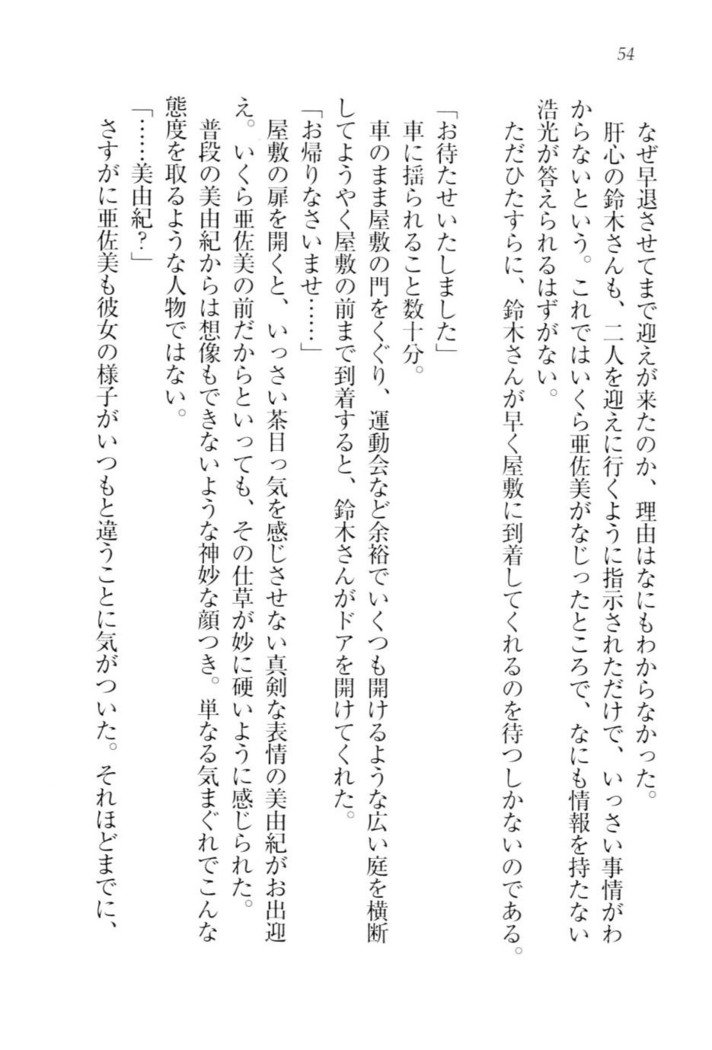 54
なぜ早退させてまで迎えが来たのか、理由はなにもわからなかった。
肝心の鈴木さんも、二人を迎えに行くように指示されただけで、いっさい事情がわ
からないという。これではいくら亜佐美がなじったところで、なにも情報を持たない
浩光が答えられるはずがない。
ただひたすらに、鈴木さんが早く屋敷に到着してくれるのを待つしかないのである。
「お待たせいたしました」
車に揺られること数十分。
車のまま屋敷の門をくぐり、運動会など余裕でいくつも開けるような広い庭を横断
してようやく屋敷の前まで到着すると、鈴木さんがドアを開けてくれた。
「お帰りなさいませ……」
屋敷の扉を開くと、いっさい茶目っ気を感じさせない真剣な表情の美由紀がお出迎
え。いくら亜佐美の前だからといっても、その仕草が妙に硬いように感じられた。
普段の美由紀からは想像もできないような神妙な顔つき。単なる気まぐれでこんな
態度を取るような人物ではない。
「……美由紀？」
さすがに亜佐美も彼女の様子がいつもと違うことに気がついた。それほどまでに、